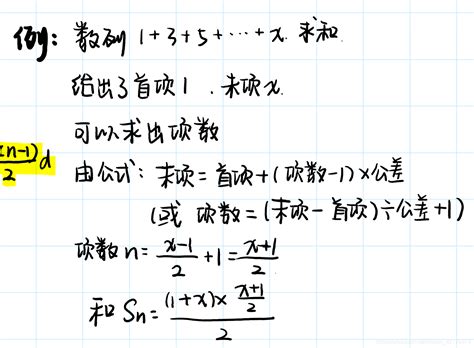 例: 数列 1+3+5+…+x. 求和.
给出了首项1 . 末项x.
可以求出项数
(n-1)/2 d
由公式: 末项=首项+(项数-1)×公差
(或 项数=(末项-首项)÷公差+1)
项数n=(x-1)/2+1=(x+1)/2
和 Sn=((1+x)×(x+1)/2)/2